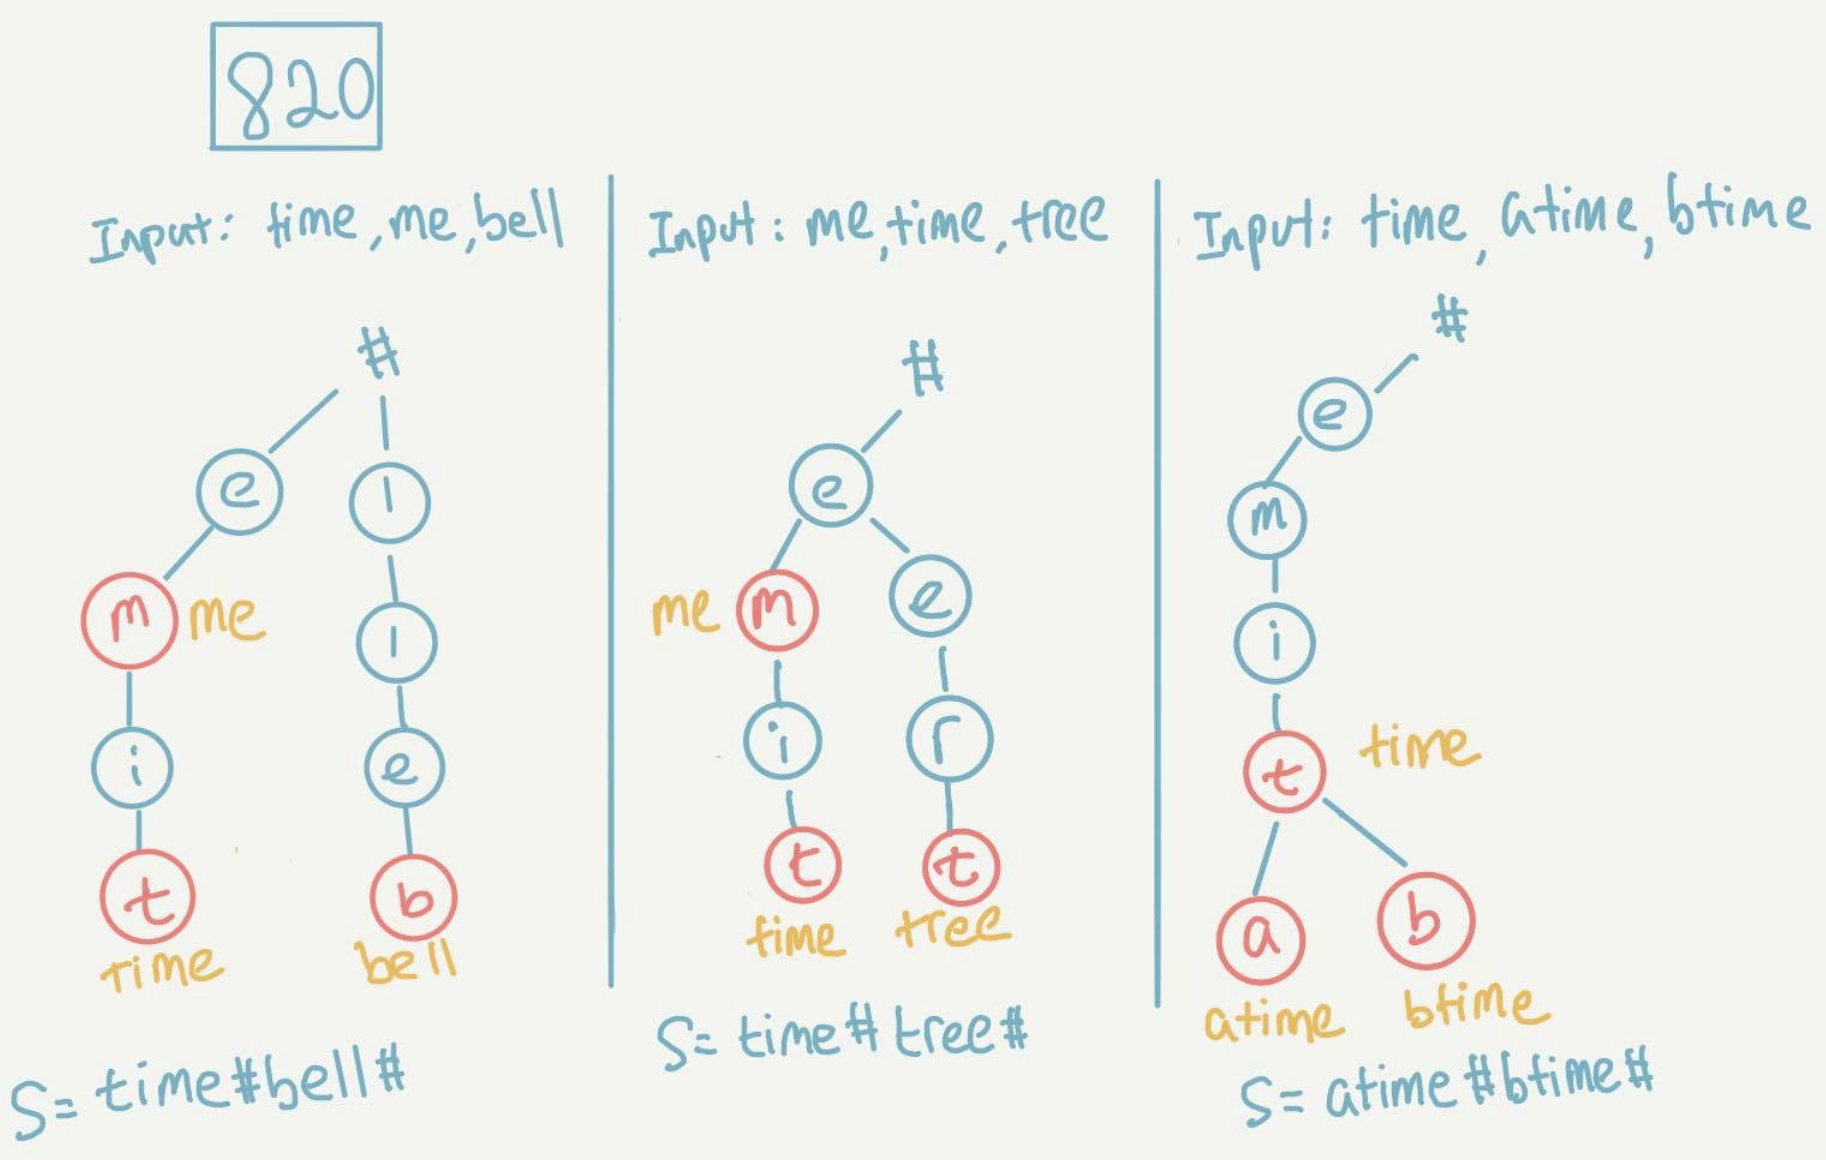 820
Input: time, me, bell
#
e
l
m
me
l
i
e
t
b
time
bell
S= time#bell#
Input: me, time, tree
#
e
me
m
e
i
r
t
t
time
tree
S= time# tree#
Input: time, atime, btime
#
e
m
i
t
time
a
b
atime
btime
S= atime#btime#